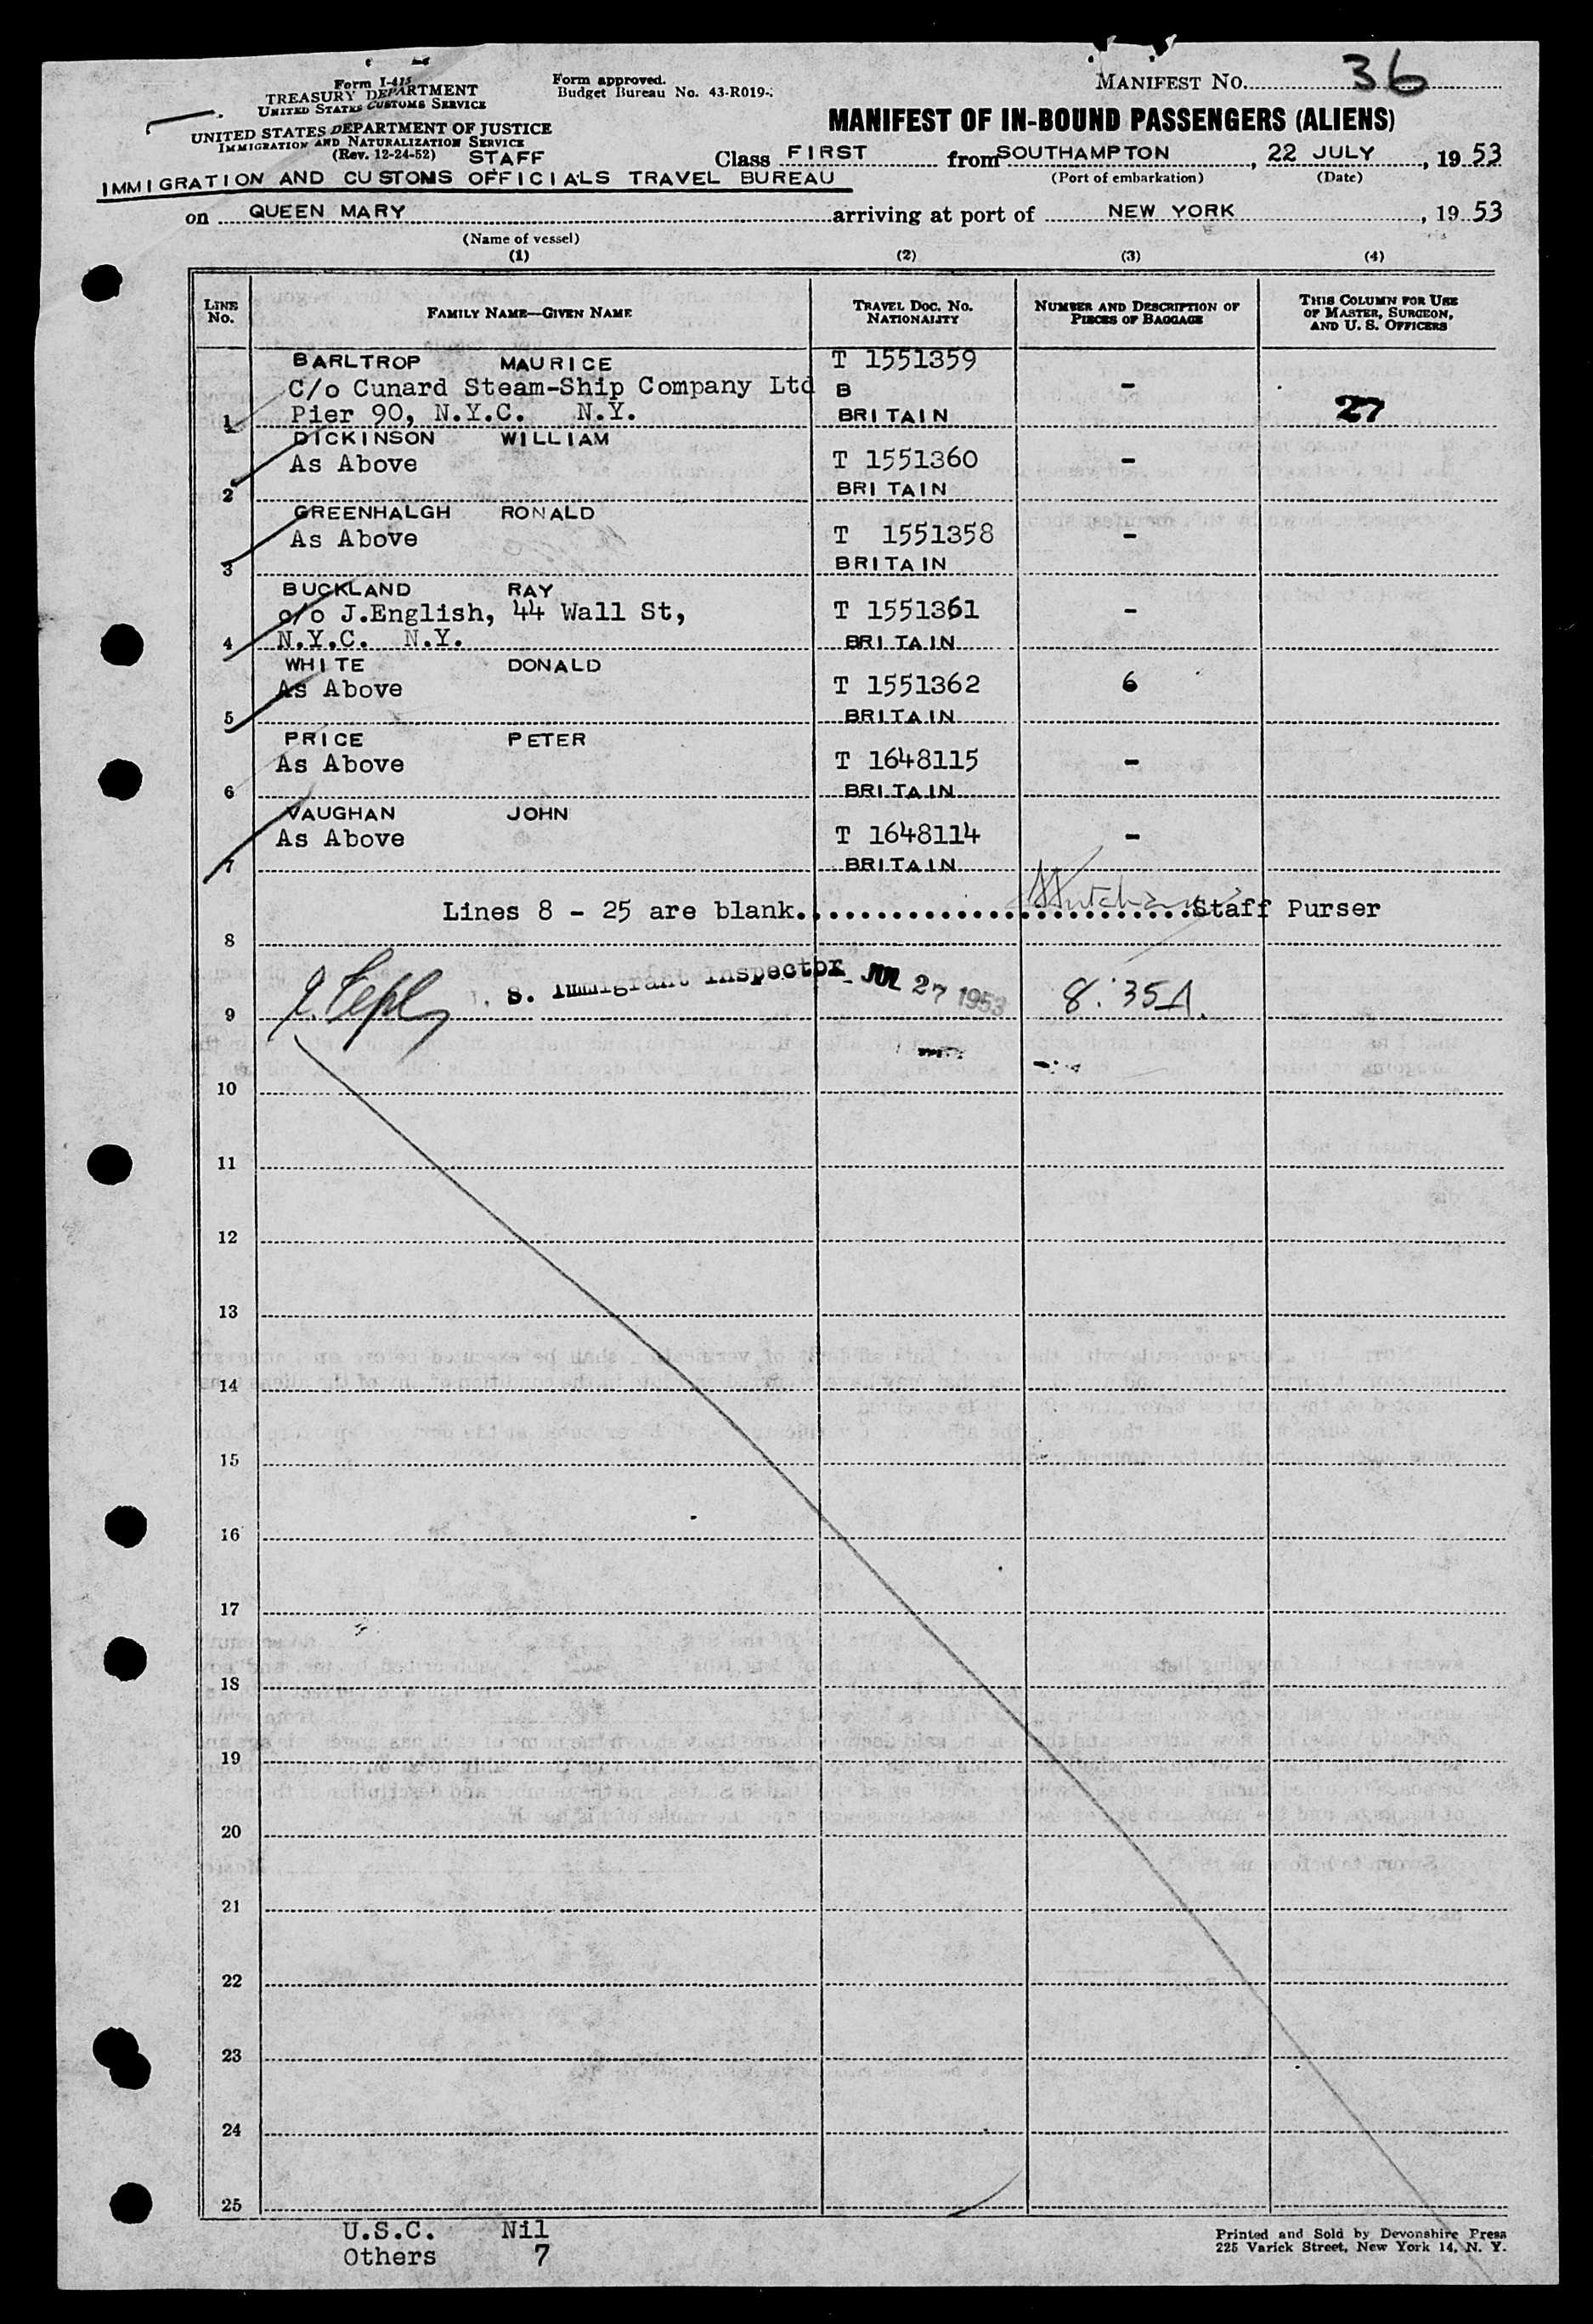 Form I-415
TREASURY DEPARTMENT
UNITED STATES CUSTOMS SERVICE
UNITED STATES DEPARTMENT OF JUSTICE
IMMIGRATION AND NATURALIZATION SERVICE
(Rev. 12-24-52) STAFF
IMMIGRATION AND CUSTOMS OFFICIALS TRAVEL BUREAU
Form approved.
Budget Bureau No. 43-R019-
MANIFEST No. 36
MANIFEST OF IN-BOUND PASSENGERS (ALIENS)
Class FIRST from SOUTHAMPTON, 22 JULY, 19 53
(Port of embarkation) (Date)
on QUEEN MARY arriving at port of NEW YORK, 19 53
(Name of vessel)
(1) (2) (3) (4)
LINE No. FAMILY NAME—GIVEN NAME TRAVEL DOC. NO. NATIONALITY NUMBER AND DESCRIPTION OF PIECES OF BAGGAGE THIS COLUMN FOR USE OF MASTER, SURGEON, AND U. S. OFFICERS
BARLTROP MAURICE T 1551359
C/o Cunard Steam-Ship Company Ltd B -
1 Pier 90, N.Y.C. N.Y. BRITAIN 27
DICKINSON WILLIAM
As Above T 1551360 -
2 BRITAIN
GREENHALGH RONALD
As Above T 1551358 -
3 BRITAIN
BUCKLAND RAY
c/o J.English, 44 Wall St, T 1551361 -
4 N.Y.C. N.Y. BRITAIN
WHITE DONALD
As Above T 1551362 6
5 BRITAIN
PRICE PETER
As Above T 1648115 -
6 BRITAIN
VAUGHAN JOHN
As Above T 1648114 -
7 BRITAIN
Lines 8 - 25 are blank..............................Staff Purser
8
S. Immigrant Inspector JUL 27 1953 8:35A.
9
10
11
12
13
14
15
16
17
18
19
20
21
22
23
24
25
U.S.C. Nil
Others 7
Printed and Sold by Devonshire Press
225 Varick Street, New York 14, N. Y.